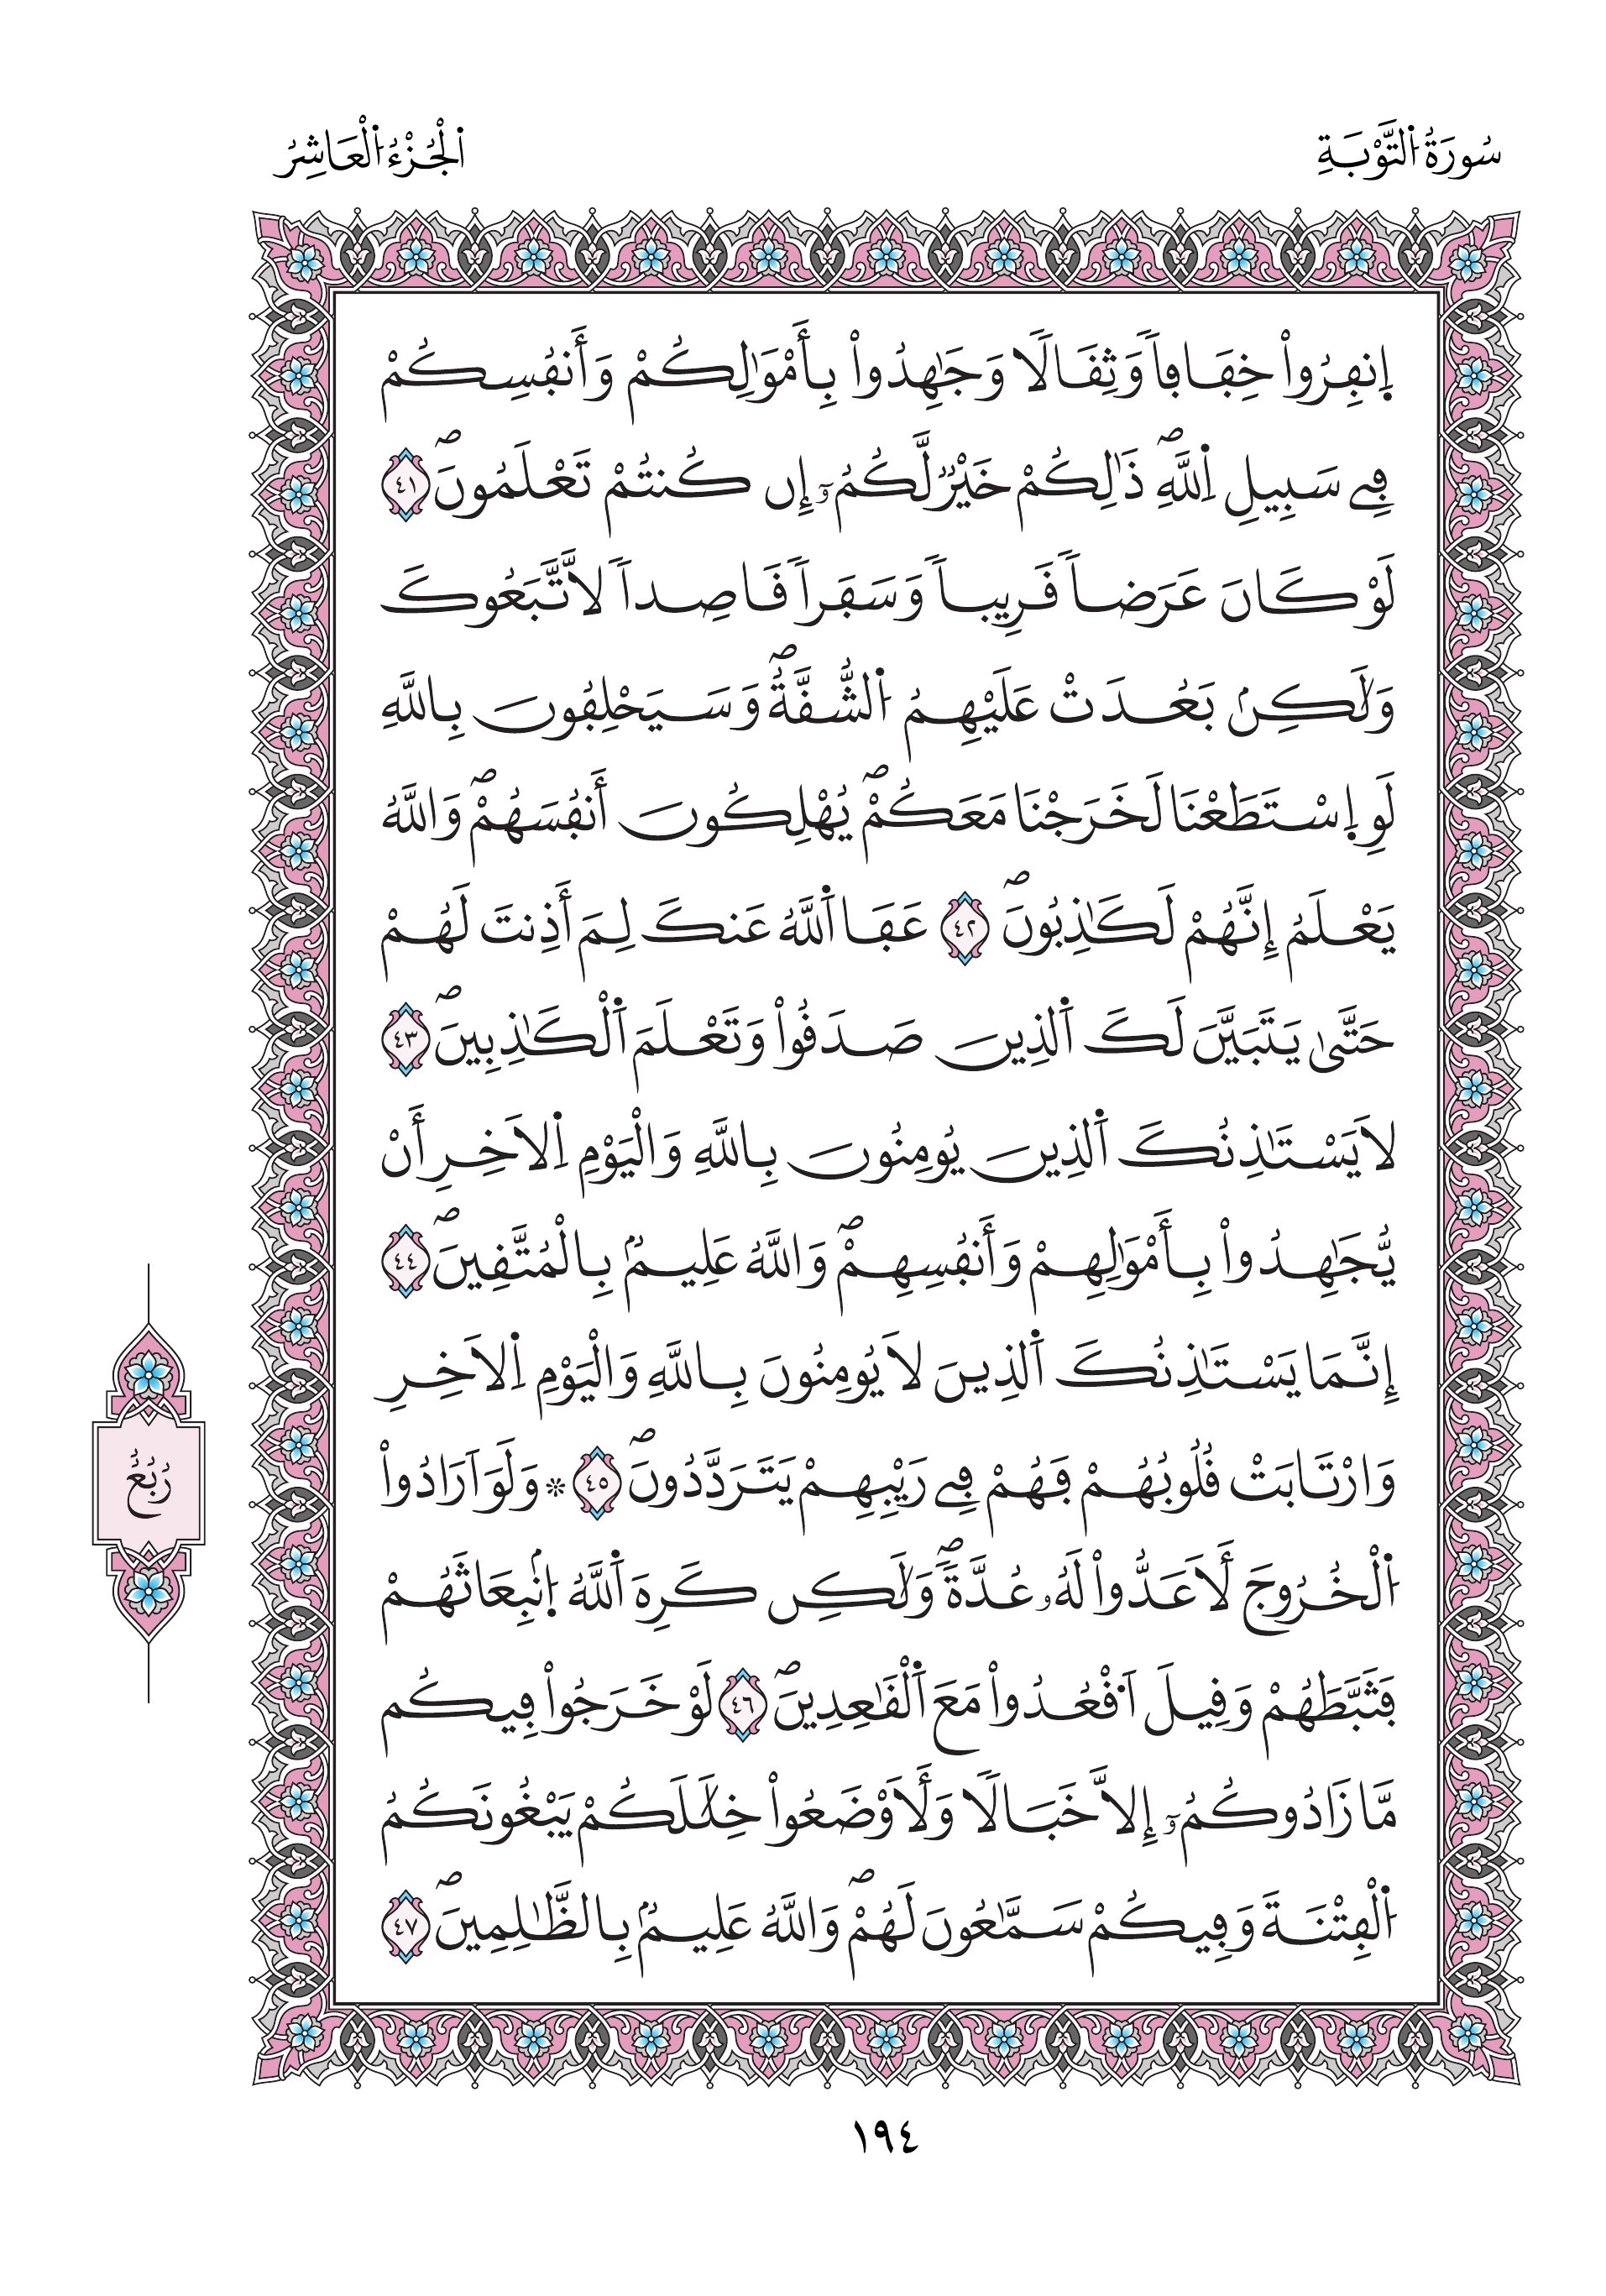 سُورَةُ اُ۬لتَّوْبَةِ
اَ۬لْجُزْءُ اُ۬لْعَاشِرُ
اِ۪نفِرُواْ خِفَافاٗ وَثِقَالٗا وَجَٰهِدُواْ بِأَمْوَٰلِكُمْ وَأَنفُسِكُمْ
فِے سَبِيلِ اِ۬للَّهِۖ ذَٰلِكُمْ خَيْرٞ لَّكُمُۥٓ إِن كُنتُمْ تَعْلَمُونَۖ ٤١
لَوْ كَانَ عَرَضاٗ قَرِيباٗ وَسَفَراٗ قَاصِداٗ لَّاتَّبَعُوكَ
وَلَٰكِنۢ بَعُدَتْ عَلَيْهِمُ اُ۬لشُّقَّةُۖ وَسَيَحْلِفُونَ بِاللَّهِ
لَوِ اِ۪سْتَطَعْنَا لَخَرَجْنَا مَعَكُمْۖ يُهْلِكُونَ أَنفُسَهُمْۖ وَاللَّهُ
يَعْلَمُ إِنَّهُمْ لَكَٰذِبُونَۖ ٤٢ عَفَا اَ۬للَّهُ عَنكَ لِمَ أَذِنتَ لَهُمْ
حَتَّىٰ يَتَبَيَّنَ لَكَ اَ۬لذِينَ صَدَقُواْ وَتَعْلَمَ اَ۬لْكَٰذِبِينَۖ ٤٣
لَا يَسْتَٰذِنُكَ اَ۬لذِينَ يُومِنُونَ بِاللَّهِ وَالْيَوْمِ اِ۬لَاخِرِ أَنْ
يُّجَٰهِدُواْ بِأَمْوَٰلِهِمْ وَأَنفُسِهِمْۖ وَاللَّهُ عَلِيمُۢ بِالْمُتَّقِينَۖ ٤٤
إِنَّمَا يَسْتَٰذِنُكَ اَ۬لذِينَ لَا يُومِنُونَ بِاللَّهِ وَالْيَوْمِ اِ۬لَاخِرِ
وَارْتَابَتْ قُلُوبُهُمْ فَهُمْ فِے رَيْبِهِمْ يَتَرَدَّدُونَۖ ٤٥ ۞ وَلَوَ اَرَادُواْ
اُ۬لْخُرُوجَ لَأَعَدُّواْ لَهُۥ عُدَّةٗۖ وَلَٰكِن كَرِهَ اَ۬للَّهُ اُ۪نۢبِعَاثَهُمْ
فَثَبَّطَهُمْ وَقِيلَ اَ۟قْعُدُواْ مَعَ اَ۬لْقَٰعِدِينَۖ ٤٦ لَوْ خَرَجُواْ فِيكُم
مَّا زَادُوكُمُۥٓ إِلَّا خَبَالٗا وَلَأَاوْضَعُواْ خِلَٰلَكُمْ يَبْغُونَكُمُ
اُ۬لْفِتْنَةَ وَفِيكُمْ سَمَّٰعُونَ لَهُمْۖ وَاللَّهُ عَلِيمُۢ بِالظَّٰلِمِينَۖ ٤٧
رُبُعُ
١٩٤